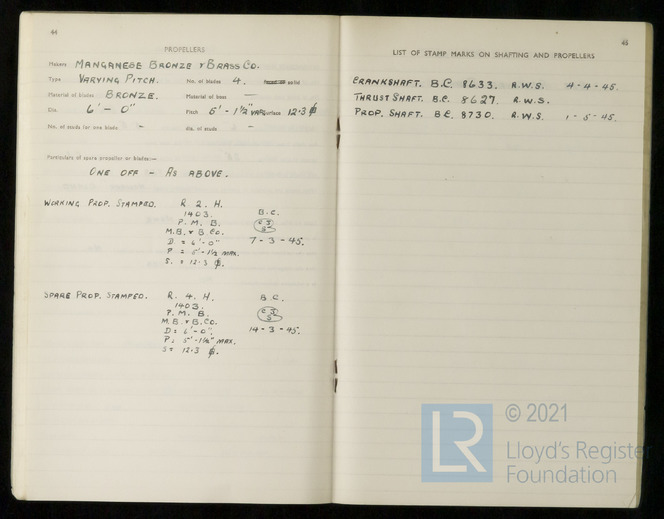 64
PROPELLERS
Makers MANGANESE BRONZE & BRASS CO.
Type VARYING PITCH. No. of blades 4. solid
Material of blades BRONZE. Material of boss —
Dia. 6'-0" Pitch 5'-1½" VAR. Surface 12.3 ф
No. of studs for one blade - dia. of studs -
Particulars of spare propeller or blades:—
ONE OFF - AS ABOVE.
WORKING PROP. STAMPED. R 2. H. B.C.
1403.
P. M. B. C J S
M.B. & B. CO.
D = 6'-0" 7-3-45.
P = 5'-1½ MAX.
S. = 12.3 ф.
SPARE PROP. STAMPED. R. 4. H. B.C.
1403.
P. M. B. C J S
M. B. & B. CO.
D = 6'-0". 14-3-45.
P = 5'-1½" MAX.
S = 12.3 ф.
65
LIST OF STAMP MARKS ON SHAFTING AND PROPELLERS
CRANKSHAFT. B.C. 8633. R.W.S. 4-4-45.
THRUST SHAFT. B.C. 8627. R.W.S.
PROP. SHAFT. B.C. 8730. R.W.S. 1-5-45.
LR
© 2021
Lloyd's Register
Foundation